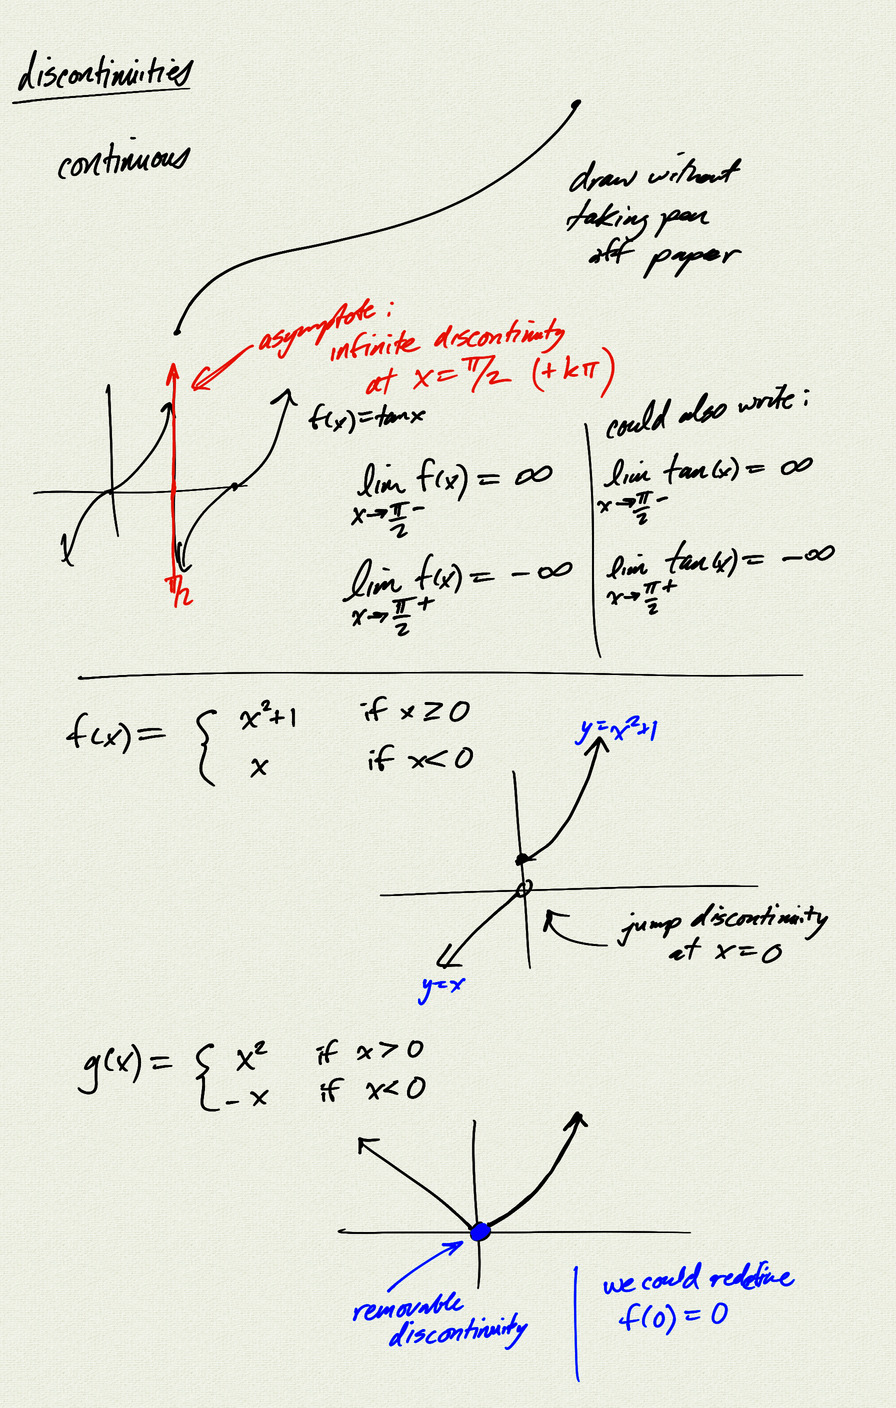 discontinuities
continuous
draw without
taking pen
off paper
asymptote:
infinite discontinuity
at x = π/2 (+kπ)
f(x) = tanx
π/2
lim f(x) = ∞
x→π/2 -
lim f(x) = -∞
x→π/2 +
could also write:
lim tan(x) = ∞
x→π/2 -
lim tan(x) = -∞
x→π/2 +
f(x) = { x²+1 if x ≥ 0
x if x < 0
y = x²+1
jump discontinuity
at x = 0
y = x
g(x) = { x² if x > 0
-x if x < 0
removable
discontinuity
we could redefine
f(0) = 0